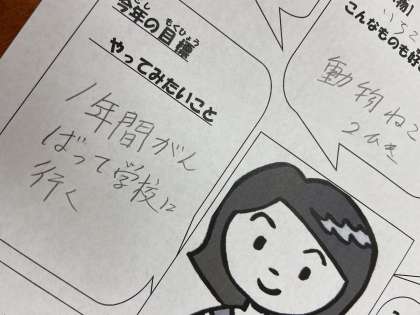 今年の目標
もくひょう
やってみたいこと
1年間がん
ばって学校に
行く
こんなものも好
動物ねこ
2ひき